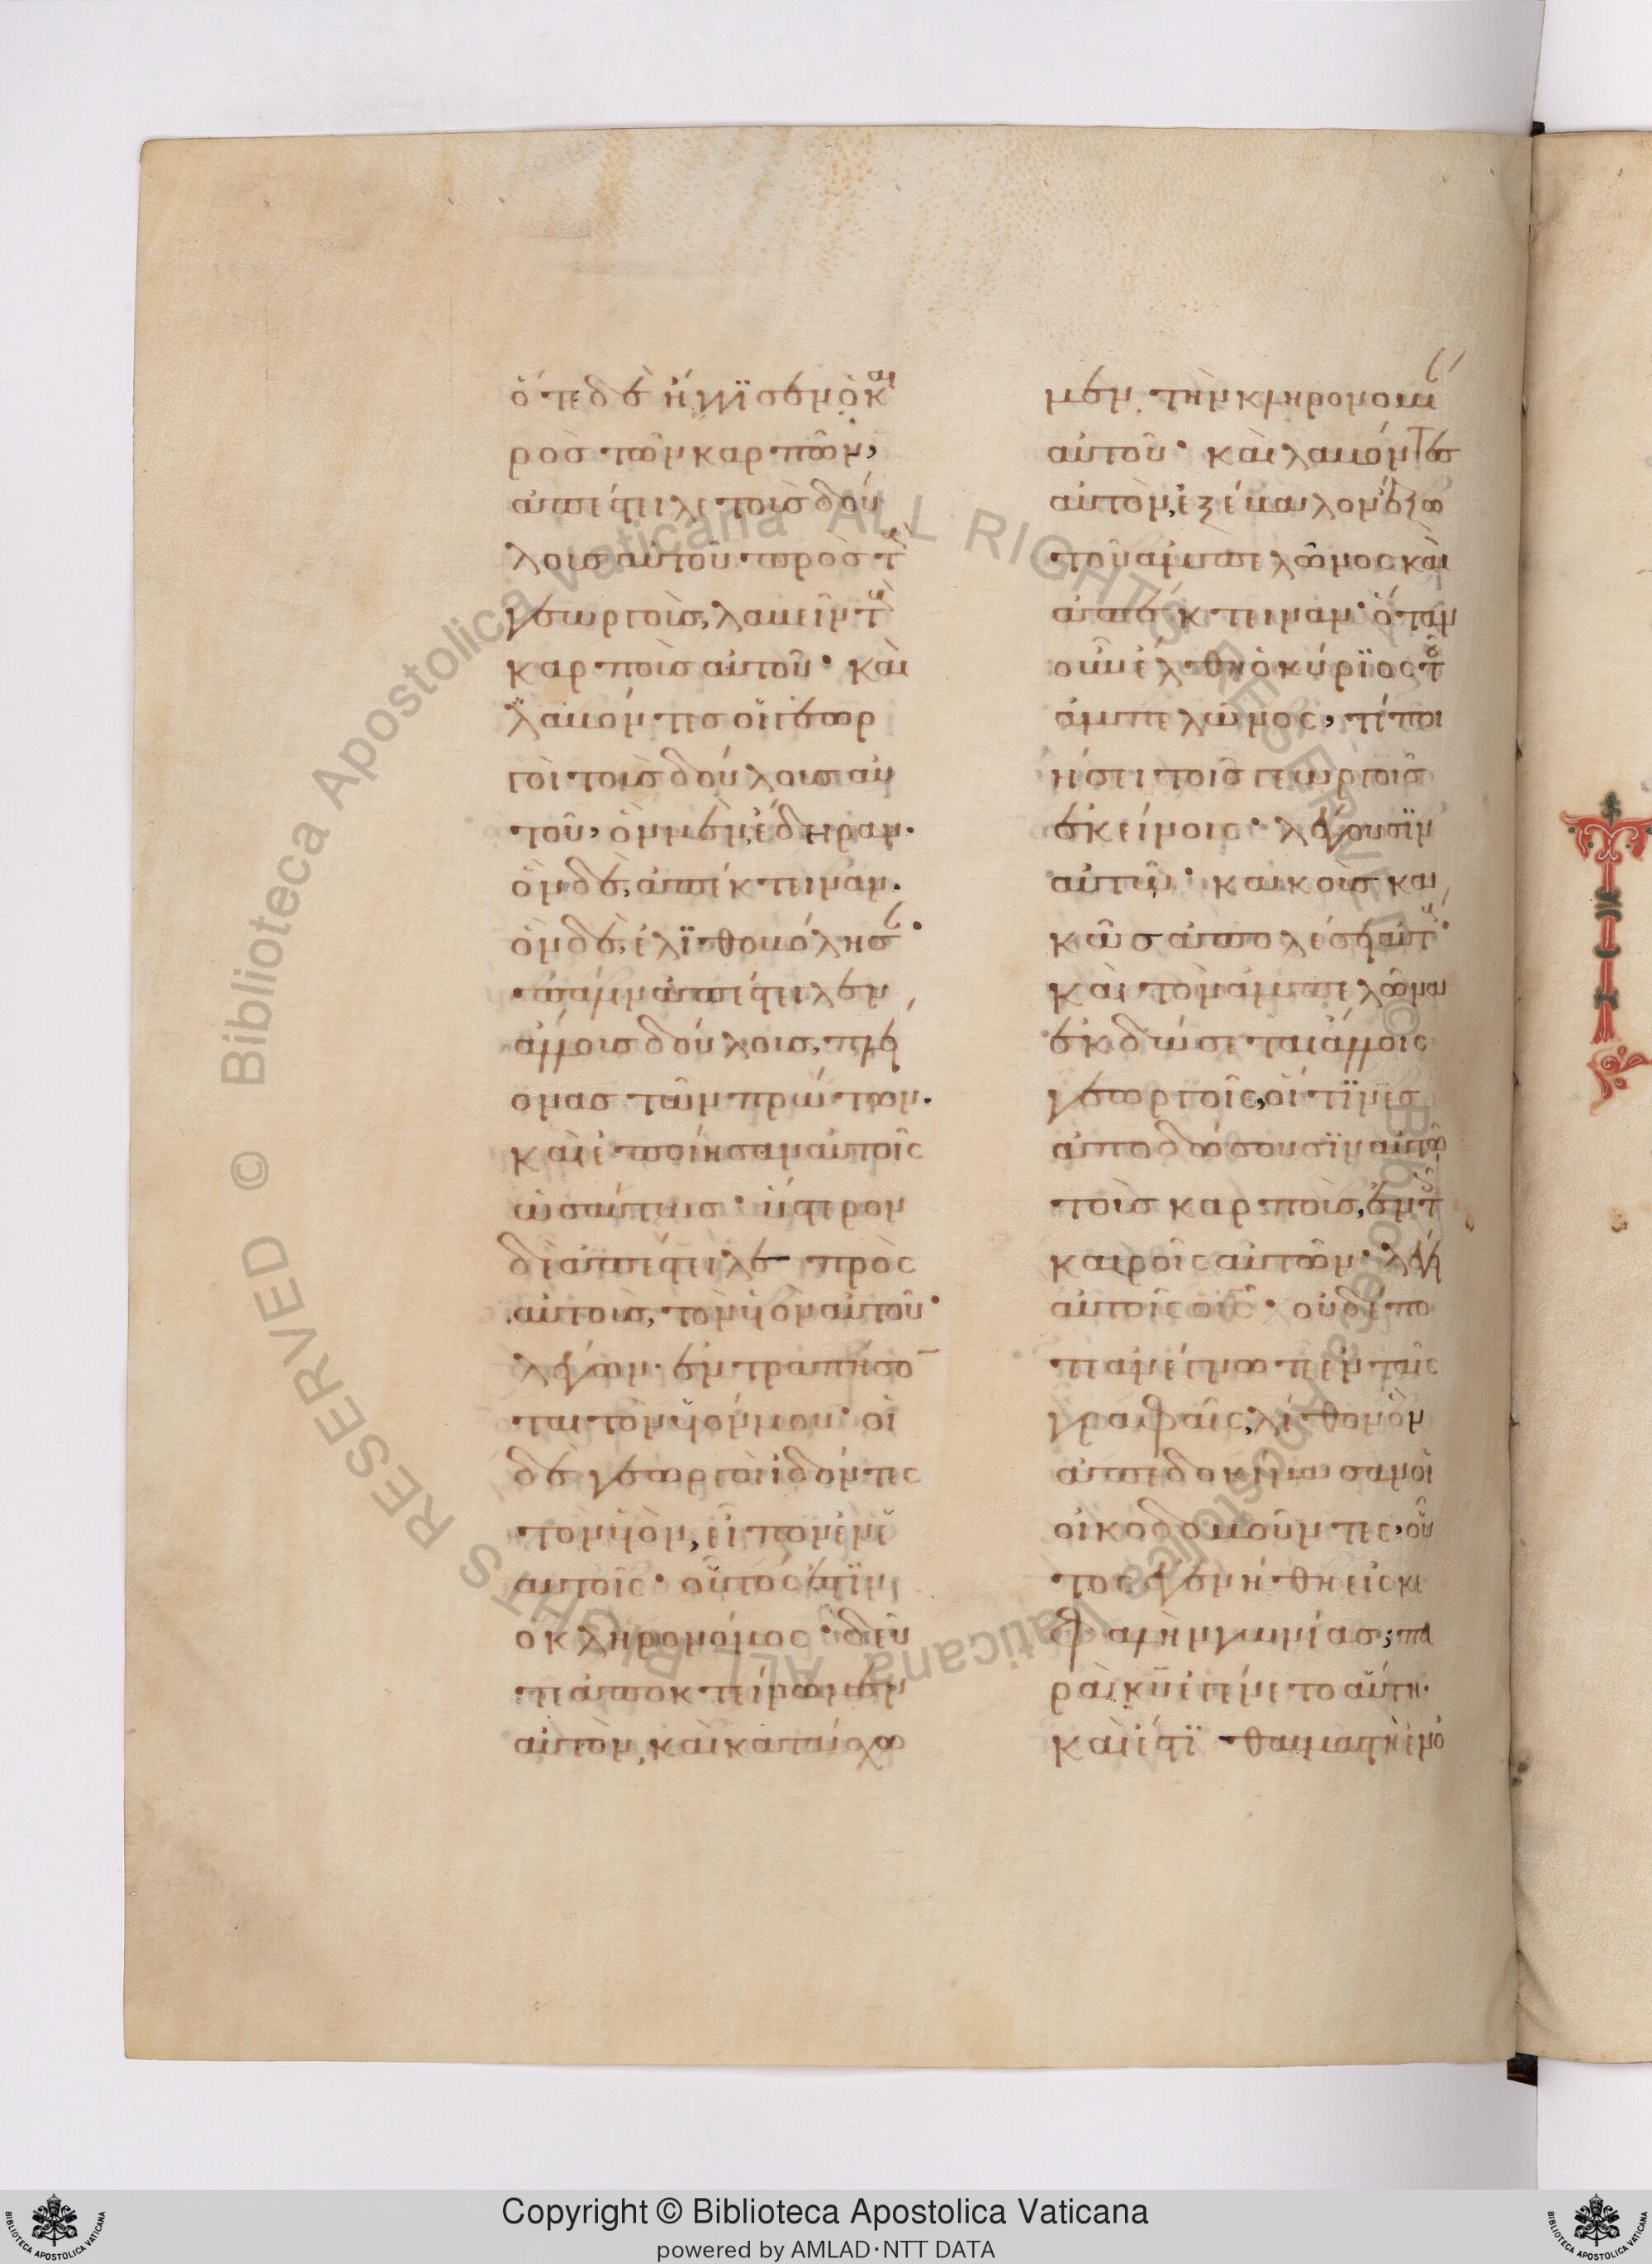 ὅτε δὲ ἤγγϊσεν ὁ και
ρὸσ τῶν καρπῶν,
ἀπέστειλε τοὺσ δού
λουσ αὐτοῦ πρὸσ τοὺσ
γεωργοὺσ, λαβεῖν τοὺσ
καρποὺσ αὐτοῦ· καὶ
λαβόντεσ οἱ γεωρ
γοὶ τοὺσ δούλουσ αὐ
τοῦ, ὃν μὲν, ἔδηραν·
ὃν δὲ, ἀπέκτειναν·
ὃν δὲ, ἐλϊθοβόλησαν·
πάλιν ἀπέστειλεν
ἄλλουσ δούλουσ, πλεί
ονασ τῶν πρώτων·
καὶ ἐποίησαν αὐτοῖς
ὡσαύτωσ· ὕστερον
δὲ ἀπέστειλε πρὸς
αὐτοὺσ, τὸν υἱὸν αὐτοῦ·
λέγων· ἐντραπήσον
ται τὸν υἱόν μου· οἱ
δὲ γεωργοὶ ἰδόντες
τὸν υἱὸν, εἶπον ἐν ἑ
αυτοῖς· οὗτός ἐστϊν
ὁ κληρονόμος· δεῦ
τε ἀποκτείνωμεν
αὐτὸν, καὶ κατάσχω
μεν τὴν κληρονομίαν
αὐτοῦ· καὶ λαβόντεσ
αὐτὸν, ἐξέβαλον ἔξω
τοῦ ἀμπελῶνος καὶ
ἀπέκτειναν· ὅταν
οὖν ἔλθη ὁ κύρϊος τοῦ
ἀμπελῶνος, τί ποι
ήσει τοῖσ γεωργοῖσ
ἐκείνοις· λέγουσϊν
αὐτῶ· κακοὺσ κα
κῶσ ἀπολέσει αὐτούς·
καὶ τὸν ἀμπελῶνα
ἐκδώσεται ἄλλοις
γεωργοῖς, οἵτϊνεσ
ἀποδώσουσϊν αὐτῶ
τοὺσ καρποὺσ, ἐν τοῖσ
καιροῖς αὐτῶν· λέγει
αὐτοῖς ὁ ι̅ς̅· οὐδέπο
τε ἀνέγνωτε ἐν ταῖς
γραφαῖς, λίθον ὃν
ἀπεδοκίμασαν οἱ
οἰκοδομοῦντες, οὗ
τος ἐγενήθη εἰς κε
φαλὴν γωνίασ, πα
ρὰ κ̅υ̅ ἐγένετο αὕτη·
καὶ ἔστϊ θαυμαστὴ ἐν ὀ
Copyright © Biblioteca Apostolica Vaticana
powered by AMLAD·NTT DATA